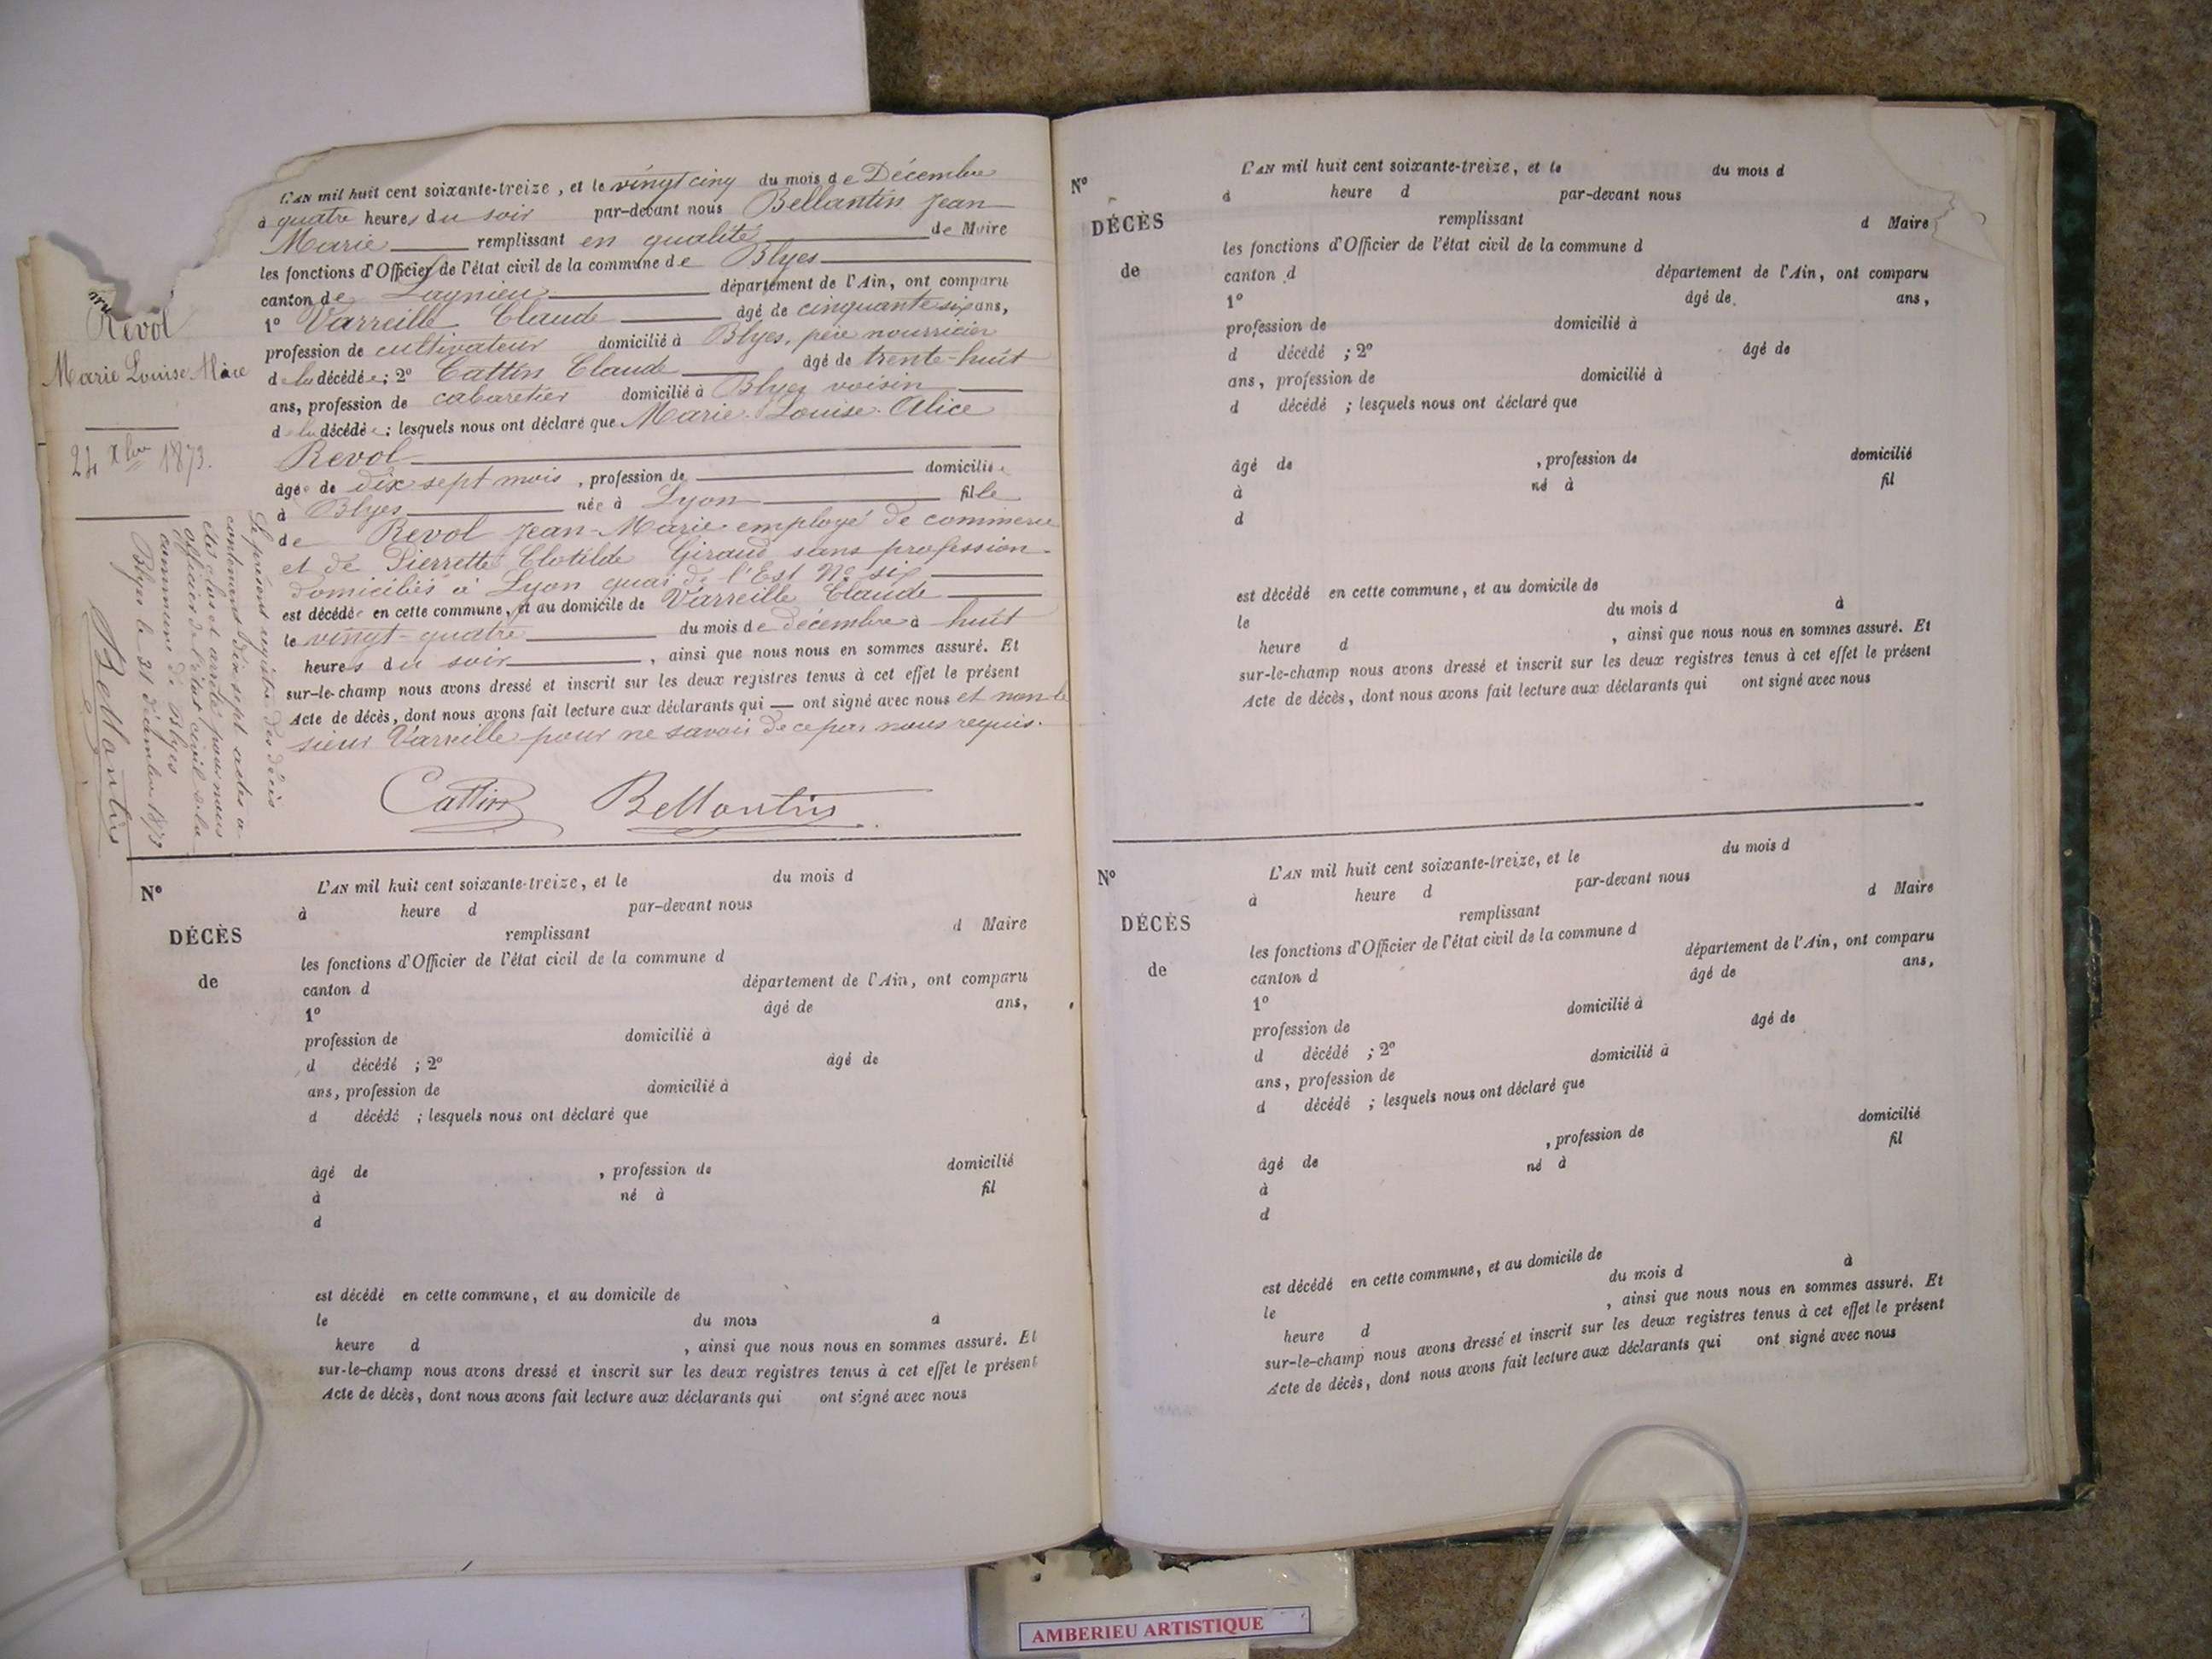 Revol
Marie Louise Alice
24 Xbre 1873.
L'AN mil huit cent soixante-treize, et le vingt cinq du mois de Décembre
à quatre heures du soir par-devant nous Bellantin Jean
Marie remplissant en qualité de Maire
les fonctions d'Officier de l'état civil de la commune de Blyes
canton de Lagnieu département de l'Ain, ont comparu
1° Varreille Claude âgé de cinquante six ans,
profession de cultivateur domicilié à Blyes, père nourricier
de la décédée; 2° Cattin Claude âgé de trente-huit
ans, profession de cabaretier domicilié à Blyes voisin
de la décédée; lesquels nous ont déclaré que Marie Louise Alice
Revol
âgée de dix sept mois, profession de domiciliée
à Blyes née à Lyon fille
de Revol Jean-Marie employé de commerce
et de Pierrette Clotilde Giraud sans profession
domiciliés à Lyon quai de l'Est No six
est décédée en cette commune, et au domicile de Varreille Claude
le vingt-quatre du mois de décembre à huit
heures du soir, ainsi que nous nous en sommes assuré. Et
sur-le-champ nous avons dressé et inscrit sur les deux registres tenus à cet effet le présent
Acte de décès, dont nous avons fait lecture aux déclarants qui ont signé avec nous et non le
sieur Varreille pour ne savoir de ce par nous requis.
Cattin Bellantin
Le présent registre des décès
contenant dix sept actes a
été clos et arrêté par nous
officier de l'état civil de la
commune de Blyes
Blyes le 31 décembre 1873
Bellantin
N°
DÉCÈS
de
L'AN mil huit cent soixante-treize, et le du mois d
à heure d par-devant nous
remplissant d Maire
les fonctions d'Officier de l'état civil de la commune d
canton d département de l'Ain, ont comparu
1° âgé de ans,
profession de domicilié à
d décédé ; 2° âgé de
ans, profession de domicilié à
d décédé ; lesquels nous ont déclaré que
âgé de , profession de domicilié
à né à fil
d
est décédé en cette commune, et au domicile de
le du mois à
heure d , ainsi que nous nous en sommes assuré. Et
sur-le-champ nous avons dressé et inscrit sur les deux registres tenus à cet effet le présent
Acte de décès, dont nous avons fait lecture aux déclarants qui ont signé avec nous
N°
DÉCÈS
de
L'AN mil huit cent soixante-treize, et le du mois d
à heure d par-devant nous
remplissant d Maire
les fonctions d'Officier de l'état civil de la commune d
canton d département de l'Ain, ont comparu
1° âgé de ans,
profession de domicilié à
d décédé ; 2° âgé de
ans, profession de domicilié à
d décédé ; lesquels nous ont déclaré que
âgé de , profession de domicilié
à né à fil
d
est décédé en cette commune, et au domicile de
le du mois d à
heure d , ainsi que nous nous en sommes assuré. Et
sur-le-champ nous avons dressé et inscrit sur les deux registres tenus à cet effet le présent
Acte de décès, dont nous avons fait lecture aux déclarants qui ont signé avec nous
N°
DÉCÈS
de
L'AN mil huit cent soixante-treize, et le du mois d
à heure d par-devant nous
remplissant d Maire
les fonctions d'Officier de l'état civil de la commune d
canton d département de l'Ain, ont comparu
1° âgé de ans,
profession de domicilié à
d décédé ; 2° âgé de
ans, profession de domicilié à
d décédé ; lesquels nous ont déclaré que
âgé de , profession de domicilié
à né à fil
d
est décédé en cette commune, et au domicile de
le du mois d à
heure d , ainsi que nous nous en sommes assuré. Et
sur-le-champ nous avons dressé et inscrit sur les deux registres tenus à cet effet le présent
Acte de décès, dont nous avons fait lecture aux déclarants qui ont signé avec nous
AMBERIEU ARTISTIQUE